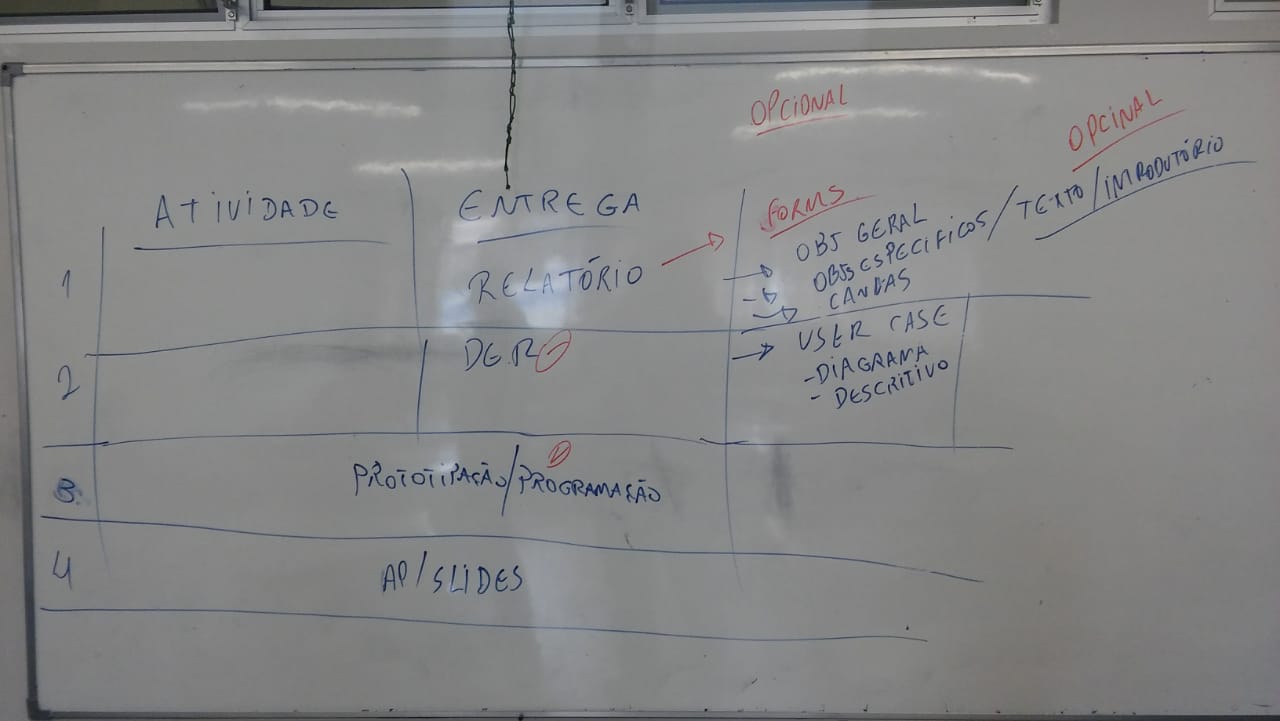 OPCIONAL
OPCINAL
ATIVIDADE
ENTREGA
FORMS
1
RELATÓRIO
OBJ GERAL
OBJS ESPECIFICOS / TEXTO / INTRODUTÓRIO
CANVAS
2
DER
USER CASE
-DIAGRAMA
- DESCRITIVO
3
PROTOTIPAÇÃO/PROGRAMAÇÃO
4
AP/SLIDES